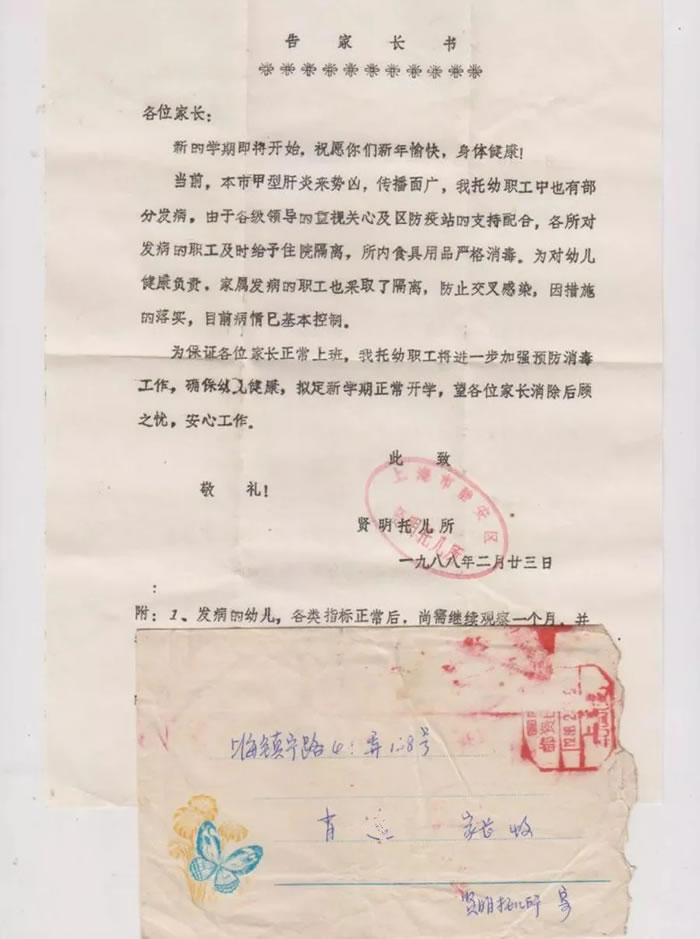 告家长书
各位家长：
新的学期即将开始，祝愿你们新年愉快，身体健康！
当前，本市甲型肝炎来势凶，传播面广，我托幼职工中也有部
分发病，由于各级领导的重视关心及区防疫站的支持配合，各所对
发病的职工及时给予住院隔离，所内食具用品严格消毒。为对幼儿
健康负责，家属发病的职工也采取了隔离，防止交叉感染，因措施
的落实，目前病情已基本控制。
为保证各位家长正常上班，我托幼职工将进一步加强预防消毒
工作，确保幼儿健康，拟定新学期正常开学，望各位家长消除后顾
之忧，安心工作。
此致
敬礼！
上海市静安区
贤明托儿所
贤明托儿所
一九八八年二月廿三日
附：1、发病的幼儿，各类指标正常后，尚需继续观察一个月，并
上海镇宁路
弄
号
家长收
贤明托儿所 寄